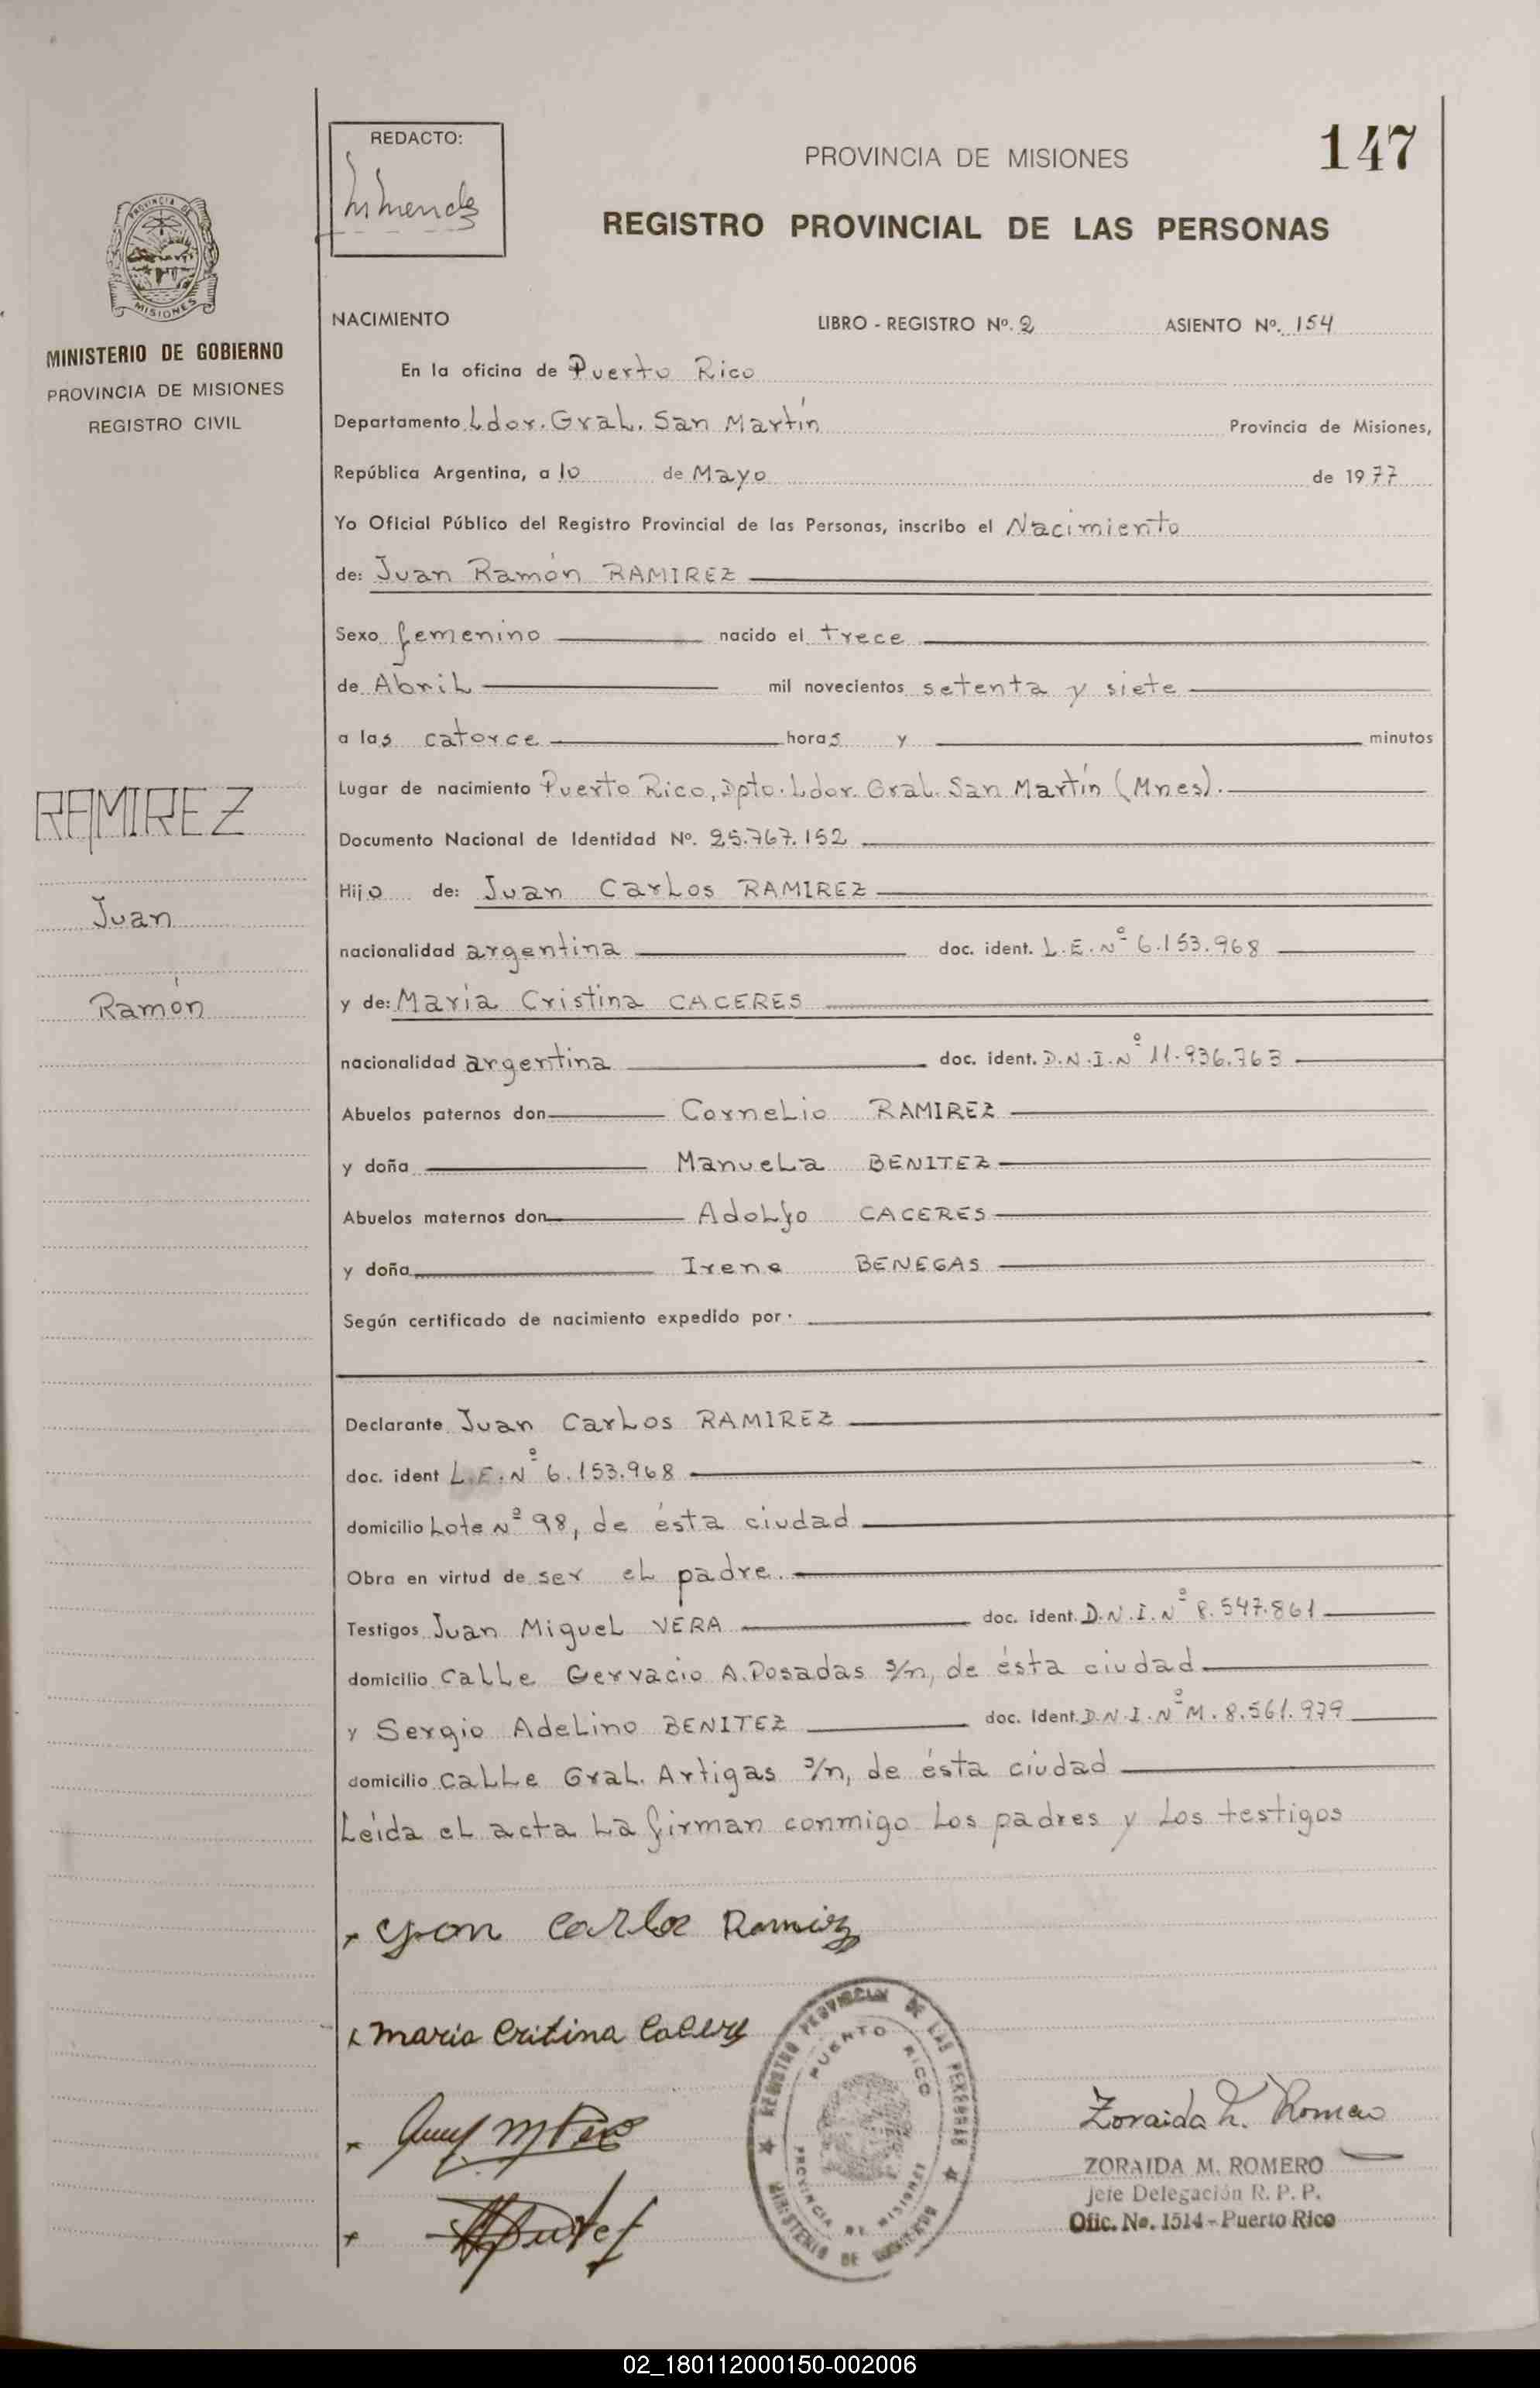 REDACTO:
PROVINCIA DE MISIONES
147
REGISTRO PROVINCIAL DE LAS PERSONAS
PROVINCIA DE
MISIONES
MINISTERIO DE GOBIERNO
PROVINCIA DE MISIONES
REGISTRO CIVIL
NACIMIENTO LIBRO - REGISTRO Nº. 2 ASIENTO Nº. 154
En la oficina de Puerto Rico
Departamento Ldor. Gral. San Martín Provincia de Misiones,
República Argentina, a 10 de Mayo de 1977
Yo Oficial Público del Registro Provincial de las Personas, inscribo el Nacimiento
de: Juan Ramón RAMIREZ
Sexo femenino nacido el trece
de Abril mil novecientos setenta y siete
a las catorce horas y minutos
Lugar de nacimiento Puerto Rico, Dpto. Ldor. Gral. San Martín (Mnes).
Documento Nacional de Identidad Nº. 25.767.152
RAMIREZ
Juan
Ramón
Hijo de: Juan Carlos RAMIREZ
nacionalidad argentina doc. ident. L.E.Nº 6.153.968
y de: María Cristina CACERES
nacionalidad argentina doc. ident. D.N.I.Nº 11.936.763
Abuelos paternos don Cornelio RAMIREZ
y doña Manuela BENITEZ
Abuelos maternos don Adolfo CACERES
y doña Irene BENEGAS
Según certificado de nacimiento expedido por
Declarante Juan Carlos RAMIREZ
doc. ident L.E.Nº 6.153.968
domicilio Lote Nº 98, de ésta ciudad
Obra en virtud de ser el padre.
Testigos Juan Miguel VERA doc. ident. D.N.I.Nº 8.547.861
domicilio Calle Gervacio A. Posadas s/n, de ésta ciudad
y Sergio Adelino BENITEZ doc. Ident. D.N.I.Nº M. 8.561.979
domicilio Calle Gral. Artigas s/n, de ésta ciudad
Leída el acta la firman conmigo los padres y los testigos
Carlos Ramirez
Maria Critina Caceres
REGISTRO PROVINCIAL DE LAS PERSONAS
PUERTO RICO
PROVINCIA DE MISIONES
MINISTERIO DE GOBIERNO
Zoraida M. Romero
ZORAIDA M. ROMERO
Jefe Delegación R. P. P.
Ofic. No. 1514 - Puerto Rico
02_180112000150-002006